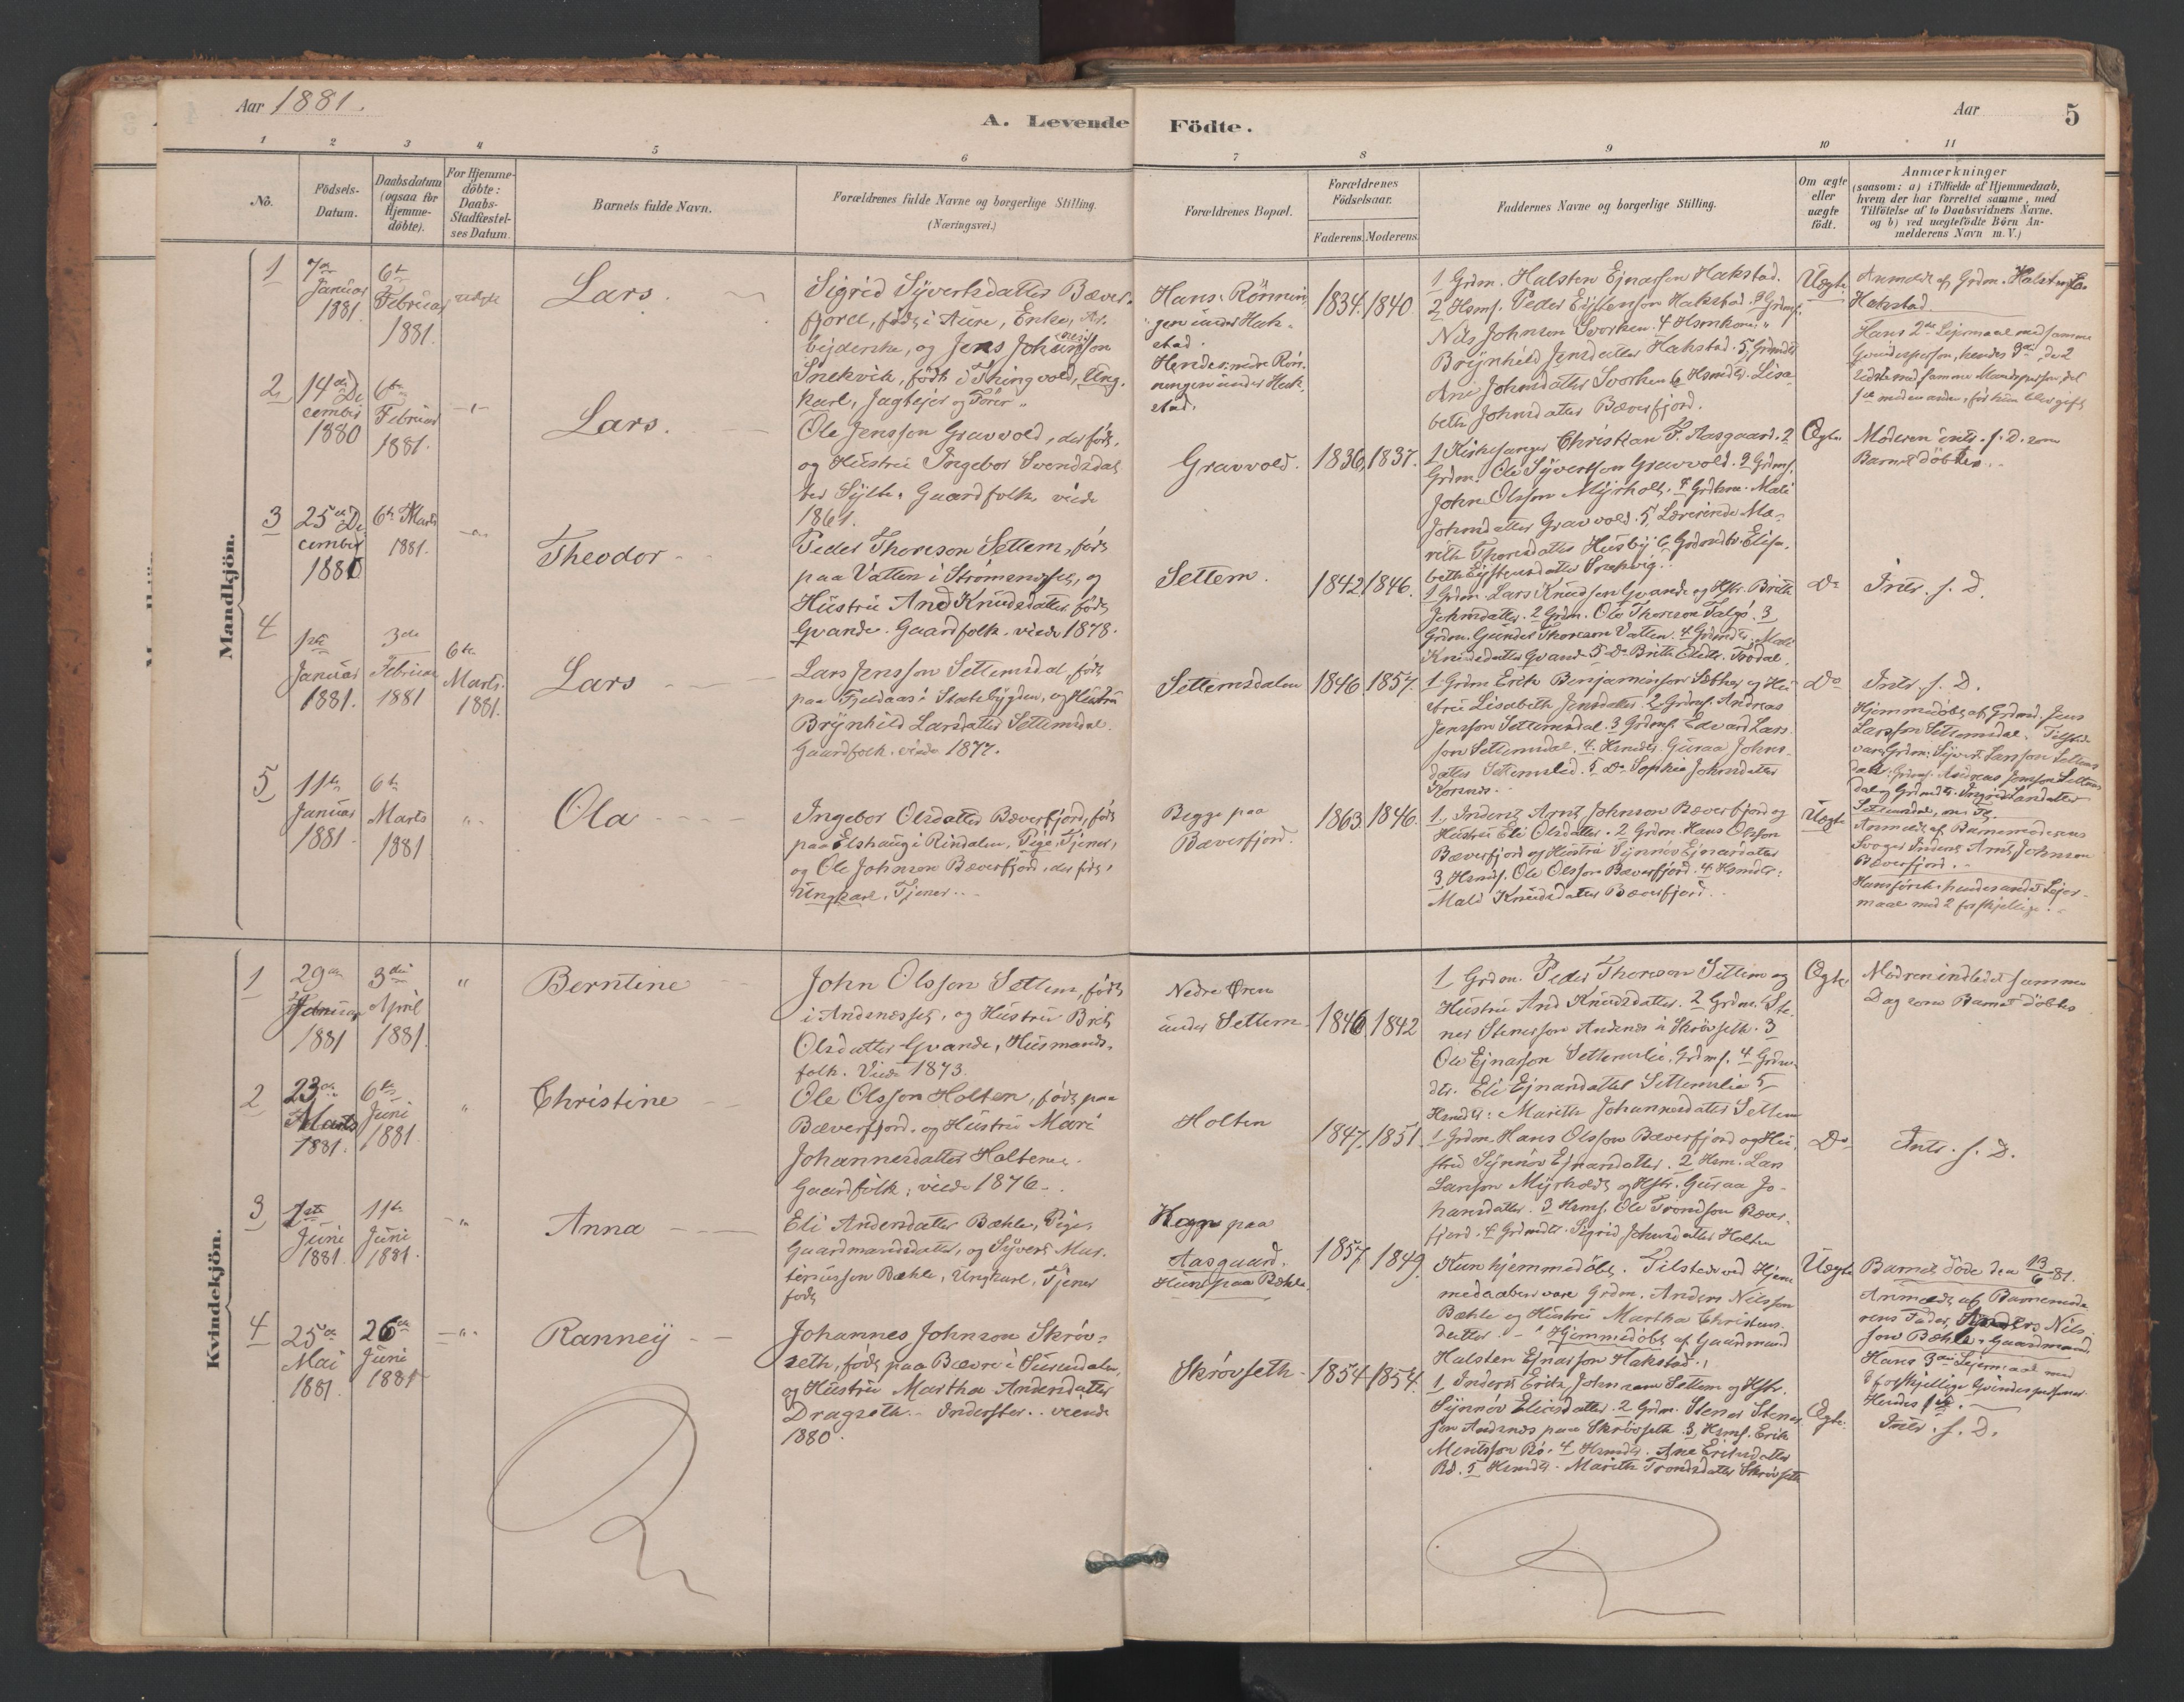 Aar 1881.
A. Levende Födte.
Aar
5
1 2 3 4 5 6 7 8 9 10 11
No.
Födsels-
Datum.
Daabsdatum
(ogsaa for
Hjemme-
döbte).
For Hjemme-
döbte:
Daabs-
Stadfæstel-
ses Datum.
Barnets fulde Navn.
Forældrenes fulde Navne og borgerlige Stilling.
(Næringsvei.)
Forældrenes Bopæl.
Forældrenes
Födselsaar.
Faderens. Moderens.
Faddernes Navne og borgerlige Stilling.
Om ægte
eller
uægte
födt.
Anmærkninger
(saasom: a) i Tilfælde af Hjemmedaab,
hvem der har forrettet samme, med
Tilföielse af to Daabsvidners Navne.
og b) ved uægtefödte Börn An-
melderens Navn m. V.)
Mandkjön.
1
7de
Januar
1881.
6te
Februar
1881.
Lars.
Sigrid Sÿvertsdatter Bæver-
fjord, födt i Aure, Enke, Ar-
beiderske, og Jens Johansson
Snekvik, födt i Thingvold, Ung-
karl, Jagtejer og Förer
Hans: Rönnin-
gen under Hak-
stad.
Hendes: nedre Rön-
ningen under Hak-
stad.
1834. 1840.
1 Grdm. Halsten Ejnarsson Hakstad.
2 Hsmf. Peder Eÿstensson Hakstad. 3 Grdmf.
Nils Johnson Svorken. 4 Hsmkone
Brÿnhild Jensdatter Hakstad. 5, Grdmdt.
Ane Johnsdatter Svorken 6 Hsmdt. Lisa-
beth Johnsdatter Bæverfjord.
Uægte.
Anmeldt af Grdm. Halsten
Hakstad
Hans 2det Lejermaal med samme
Qvindesperson, hendes 3die, de 2
sidste med samme Mandsperson, det
1ste med en anden, för hun blev gift
2
14de De
cember
1880
6te
Februar
1881.
Lars.
Ole Jensson Gravvold, der födt,
og Hustru Ingebor Svendsdat-
ter Sÿlte. Gaardfolk, viede
1861.
Gravvold.
1836. 1837.
1 Kirkesanger Christian F. Aasgaard. 2
Grdm. Ole Sÿvertsson Gravvold. 3 Grdmf.
John Olsson Mÿrholt. 4 Grdkone. Mali
Johnsdatter Gravvold. 5, Lærerinde Ma-
rith Thoresdatter Husbÿ 6 Grdmdt. Elisa-
beth Eÿstensdatter Snekvig.
Ægte.
Moderen intr. s. D. som
Barnet döbtes.
3
25de De
cember
1880
6te Marts
1881.
Theodor
Peder Thoreson Settem, födt
paa Vatten i Strömsnesset, og
Hustru And Knudsdatter födt
Qvande. Gaardfolk. viede 1878.
Settem.
1842. 1846.
1 Grdm. Lars Knudsson Qvande og Hstr. Brith
Johnsdatter. 2 Grdm. Ole Thoreson Talgö. 3
Grdm. Gunder Thoreson Vatten. 4 Grdmdt. Mali
Knudsdatter Qvande 5 Do Brith Eliedtr. Trödal.
Do
Intr. s. D.
4
1ste
Januar
1881.
3die
Februar
1881
6te
Marts.
1881.
Lars
Lars Jensson Settemsdal, födt
paa Fjeldaas i Stadsbÿgden, og Hustru
Brÿnhild Larsdatter Settemsdal.
Gaardfolk. viede 1877.
Settemsdalen
1846. 1857.
1 Grdm Erik Benjaminson Sæther og Hu-
stru Lisabeth Jensdatter. 2 Grdmf. Andreas
Jensson Settemsdal. 3 Grdmf. Edvard Lars-
son Settemsdal. 4. Hsmdt. Guraa Johns-
datter Settemslid. 5 Do Sophia Johnsdatter
Do
Intr. s. D.
Hjemmedöbt af Grdmd. Jens
Larsson Settemsdal. Tilstede
vare Grdm: Sÿvert Larsson Settems-
dal, Grdmf. Andreas Jensson Settems-
dal og Grdmdt. Ingrid Larsdatter
Settemsdal, m. Fl.
5
11te
Januar
1881.
6te
Marts
1881
Ola
Ingebor Olsdatter Bæverfjord, födt
paa Elshaug i Rindalen, Pige, Tjener,
og Ole Johnson Bæverfjord, der födt,
Ungkarl, Tjener.
Begge paa
Bæverfjord.
1863. 1846.
1, Inderst Arnt Johnson Bæverfjord og
Hustru Eli Olsdatter. 2 Grdm. Hans Olsson
Bæverfjord og Hustru Sÿnnöv Ejnarsdatter
3 Hsmf. Ole Olsson Bæverfjord. 4. Hsmdt:
Mali Knudsdatter Bæverfjord.
Uægte
Anmeldt af Barnemoderens
Svoger Inderst Arnt Johnson
Bæverfjord.
Hans förste, hendes andet Lejer-
maal med 2 forskjellige.
Kvindekjön.
1
29de
Januar
1881
3die
April
1881.
Berntine
John Olsson Settem, födt
i Andsnesset, og Hustru Brit
Olsdatter Qvande, Husmands-
folk. Viede 1873.
Nedre Ören
under Settem.
1846 1842
1 Grdm. Peder Thoreson Settem og
Hustru And Knudsdatter. 2 Grdm. Ste-
ner Stenersson Andsnes i Skrövseth. 3
Ole Ejnarson Settemslie, Grdmf. 4 Grdm-
dtr. Eli Ejnarsdatter Settemslie 5
Hsmdt: Marith Johannesdatter Settem
Ægte.
Moderen indledet samme
Dag som Barnet döbtes
2
23de
Marts
1881.
6te
Juni
1881
Christine
Ole Olsson Holten, födt paa
Bæverfjord, og Hustru Mari
Johannesdatter Holten.
Gaardfolk, viede 1876.
Holten
1847. 1851.
1 Grdm. Hans Olsson Bæverfjord og Hu-
stru Sÿnnöv Ejnarsdatter. 2 Hsm. Lars
Larsson Mÿrholt og Hstr. Guraa Jo-
hansdatter. 3 Hsmf. Ole Trondson Bæver-
fjord. 4 Grdmdt. Sigrid Johnsdatter Holten
Do
Intr. s. D.
3
1ste
Juni
1881
11te
Juni
1881.
Anna
Eli Andersdatter Bæhle, Pige,
Gaardmandsdatter, og Sÿvert Mor-
Bæhle, Ungkarl, Tjener
födt
paa
Aasgaard.
Hun paa Bæhle.
1857. 1849.
Kun hjemmedöbt. Tilstede ved Hjem-
medaaben vare Grdm. Anders Nilsson
Bæhle og Hustru Martha Christens-
datter. Hjemmedöbt af Gaardmand
Halsten Ejnarsson Hakstad.
Uægte
Barnet döde den 13/6 81.
Anmeldt af Barnemode-
rens Fader, Anders Nils-
son Bæhle, Gaardmand
Hans 3die Lejermaal med
3 forskjellige Qvindespersoner.
Hendes 1ste.
4
25de
Mai
1881.
26de
Juni
1881
Ranneÿ
Johannes Johnson Skröv-
seth, födt paa Bævre i Surendalen,
og Hustru Martha Andersdatter
Dragseth. Inderster. viede
1880.
Skrövseth
1854 1854.
1, Inderst Erik Johnson Settem og Hstr.
Sÿnnöv Eliesdatter. 2 Grdm. Stener Stener-
son Andsnes paa Skrövseth. 3 Hsmf. Erik
Mentsson Bö. 4 Hsmdt. Ane Eriksdatter
Bö. 5 Hsmdt. Marith Trondsdatter Skrövseth
Ægte.
Intr. s. D.